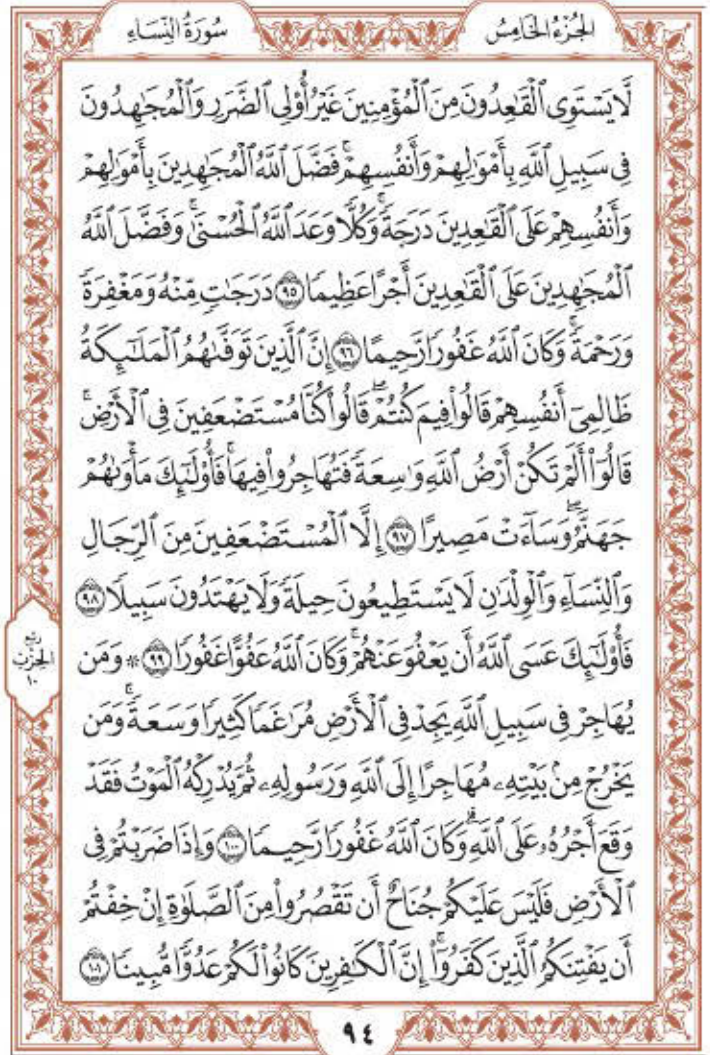 الجُزْءُ الخَامِسُ
سُورَةُ النِّسَاءِ
لَّا يَسْتَوِي ٱلْقَٰعِدُونَ مِنَ ٱلْمُؤْمِنِينَ غَيْرُ أُوْلِي ٱلضَّرَرِ وَٱلْمُجَٰهِدُونَ
فِي سَبِيلِ ٱللَّهِ بِأَمْوَٰلِهِمْ وَأَنفُسِهِمْۚ فَضَّلَ ٱللَّهُ ٱلْمُجَٰهِدِينَ بِأَمْوَٰلِهِمْ
وَأَنفُسِهِمْ عَلَى ٱلْقَٰعِدِينَ دَرَجَةٗۚ وَكُلّٗا وَعَدَ ٱللَّهُ ٱلْحُسْنَىٰۚ وَفَضَّلَ ٱللَّهُ
ٱلْمُجَٰهِدِينَ عَلَى ٱلْقَٰعِدِينَ أَجْرًا عَظِيمٗا ۝٩٥ دَرَجَٰتٖ مِّنْهُ وَمَغْفِرَةٗ
وَرَحْمَةٗۚ وَكَانَ ٱللَّهُ غَفُورٗا رَّحِيمًا ۝٩٦ إِنَّ ٱلَّذِينَ تَوَفَّىٰهُمُ ٱلْمَلَٰٓئِكَةُ
ظَالِمِيٓ أَنفُسِهِمْ قَالُواْ فِيمَ كُنتُمْۖ قَالُواْ كُنَّا مُسْتَضْعَفِينَ فِي ٱلْأَرْضِۚ
قَالُوٓاْ أَلَمْ تَكُنْ أَرْضُ ٱللَّهِ وَٰسِعَةٗ فَتُهَاجِرُواْ فِيهَاۚ فَأُوْلَٰٓئِكَ مَأْوَىٰهُمْ
جَهَنَّمُۖ وَسَآءَتْ مَصِيرًا ۝٩٧ إِلَّا ٱلْمُسْتَضْعَفِينَ مِنَ ٱلرِّجَالِ
وَٱلنِّسَآءِ وَٱلْوِلْدَٰنِ لَا يَسْتَطِيعُونَ حِيلَةٗ وَلَا يَهْتَدُونَ سَبِيلٗا ۝٩٨
فَأُوْلَٰٓئِكَ عَسَى ٱللَّهُ أَن يَعْفُوَ عَنْهُمْۚ وَكَانَ ٱللَّهُ عَفُوًّا غَفُورٗا ۝٩٩ * وَمَن
يُهَاجِرْ فِي سَبِيلِ ٱللَّهِ يَجِدْ فِي ٱلْأَرْضِ مُرَٰغَمٗا كَثِيرٗا وَسَعَةٗۚ وَمَن
يَخْرُجْ مِنۢ بَيْتِهِۦ مُهَاجِرًا إِلَى ٱللَّهِ وَرَسُولِهِۦ ثُمَّ يُدْرِكْهُ ٱلْمَوْتُ فَقَدْ
وَقَعَ أَجْرُهُۥ عَلَى ٱللَّهِۗ وَكَانَ ٱللَّهُ غَفُورٗا رَّحِيمٗا ۝١٠٠ وَإِذَا ضَرَبْتُمْ فِي
ٱلْأَرْضِ فَلَيْسَ عَلَيْكُمْ جُنَاحٌ أَن تَقْصُرُواْ مِنَ ٱلصَّلَوٰةِ إِنْ خِفْتُمْ
أَن يَفْتِنَكُمُ ٱلَّذِينَ كَفَرُوٓاْۚ إِنَّ ٱلْكَٰفِرِينَ كَانُواْ لَكُمْ عَدُوّٗا مُّبِينٗا ۝١٠١
رُبْعُ
الحِزْبِ
١٠
٩٤